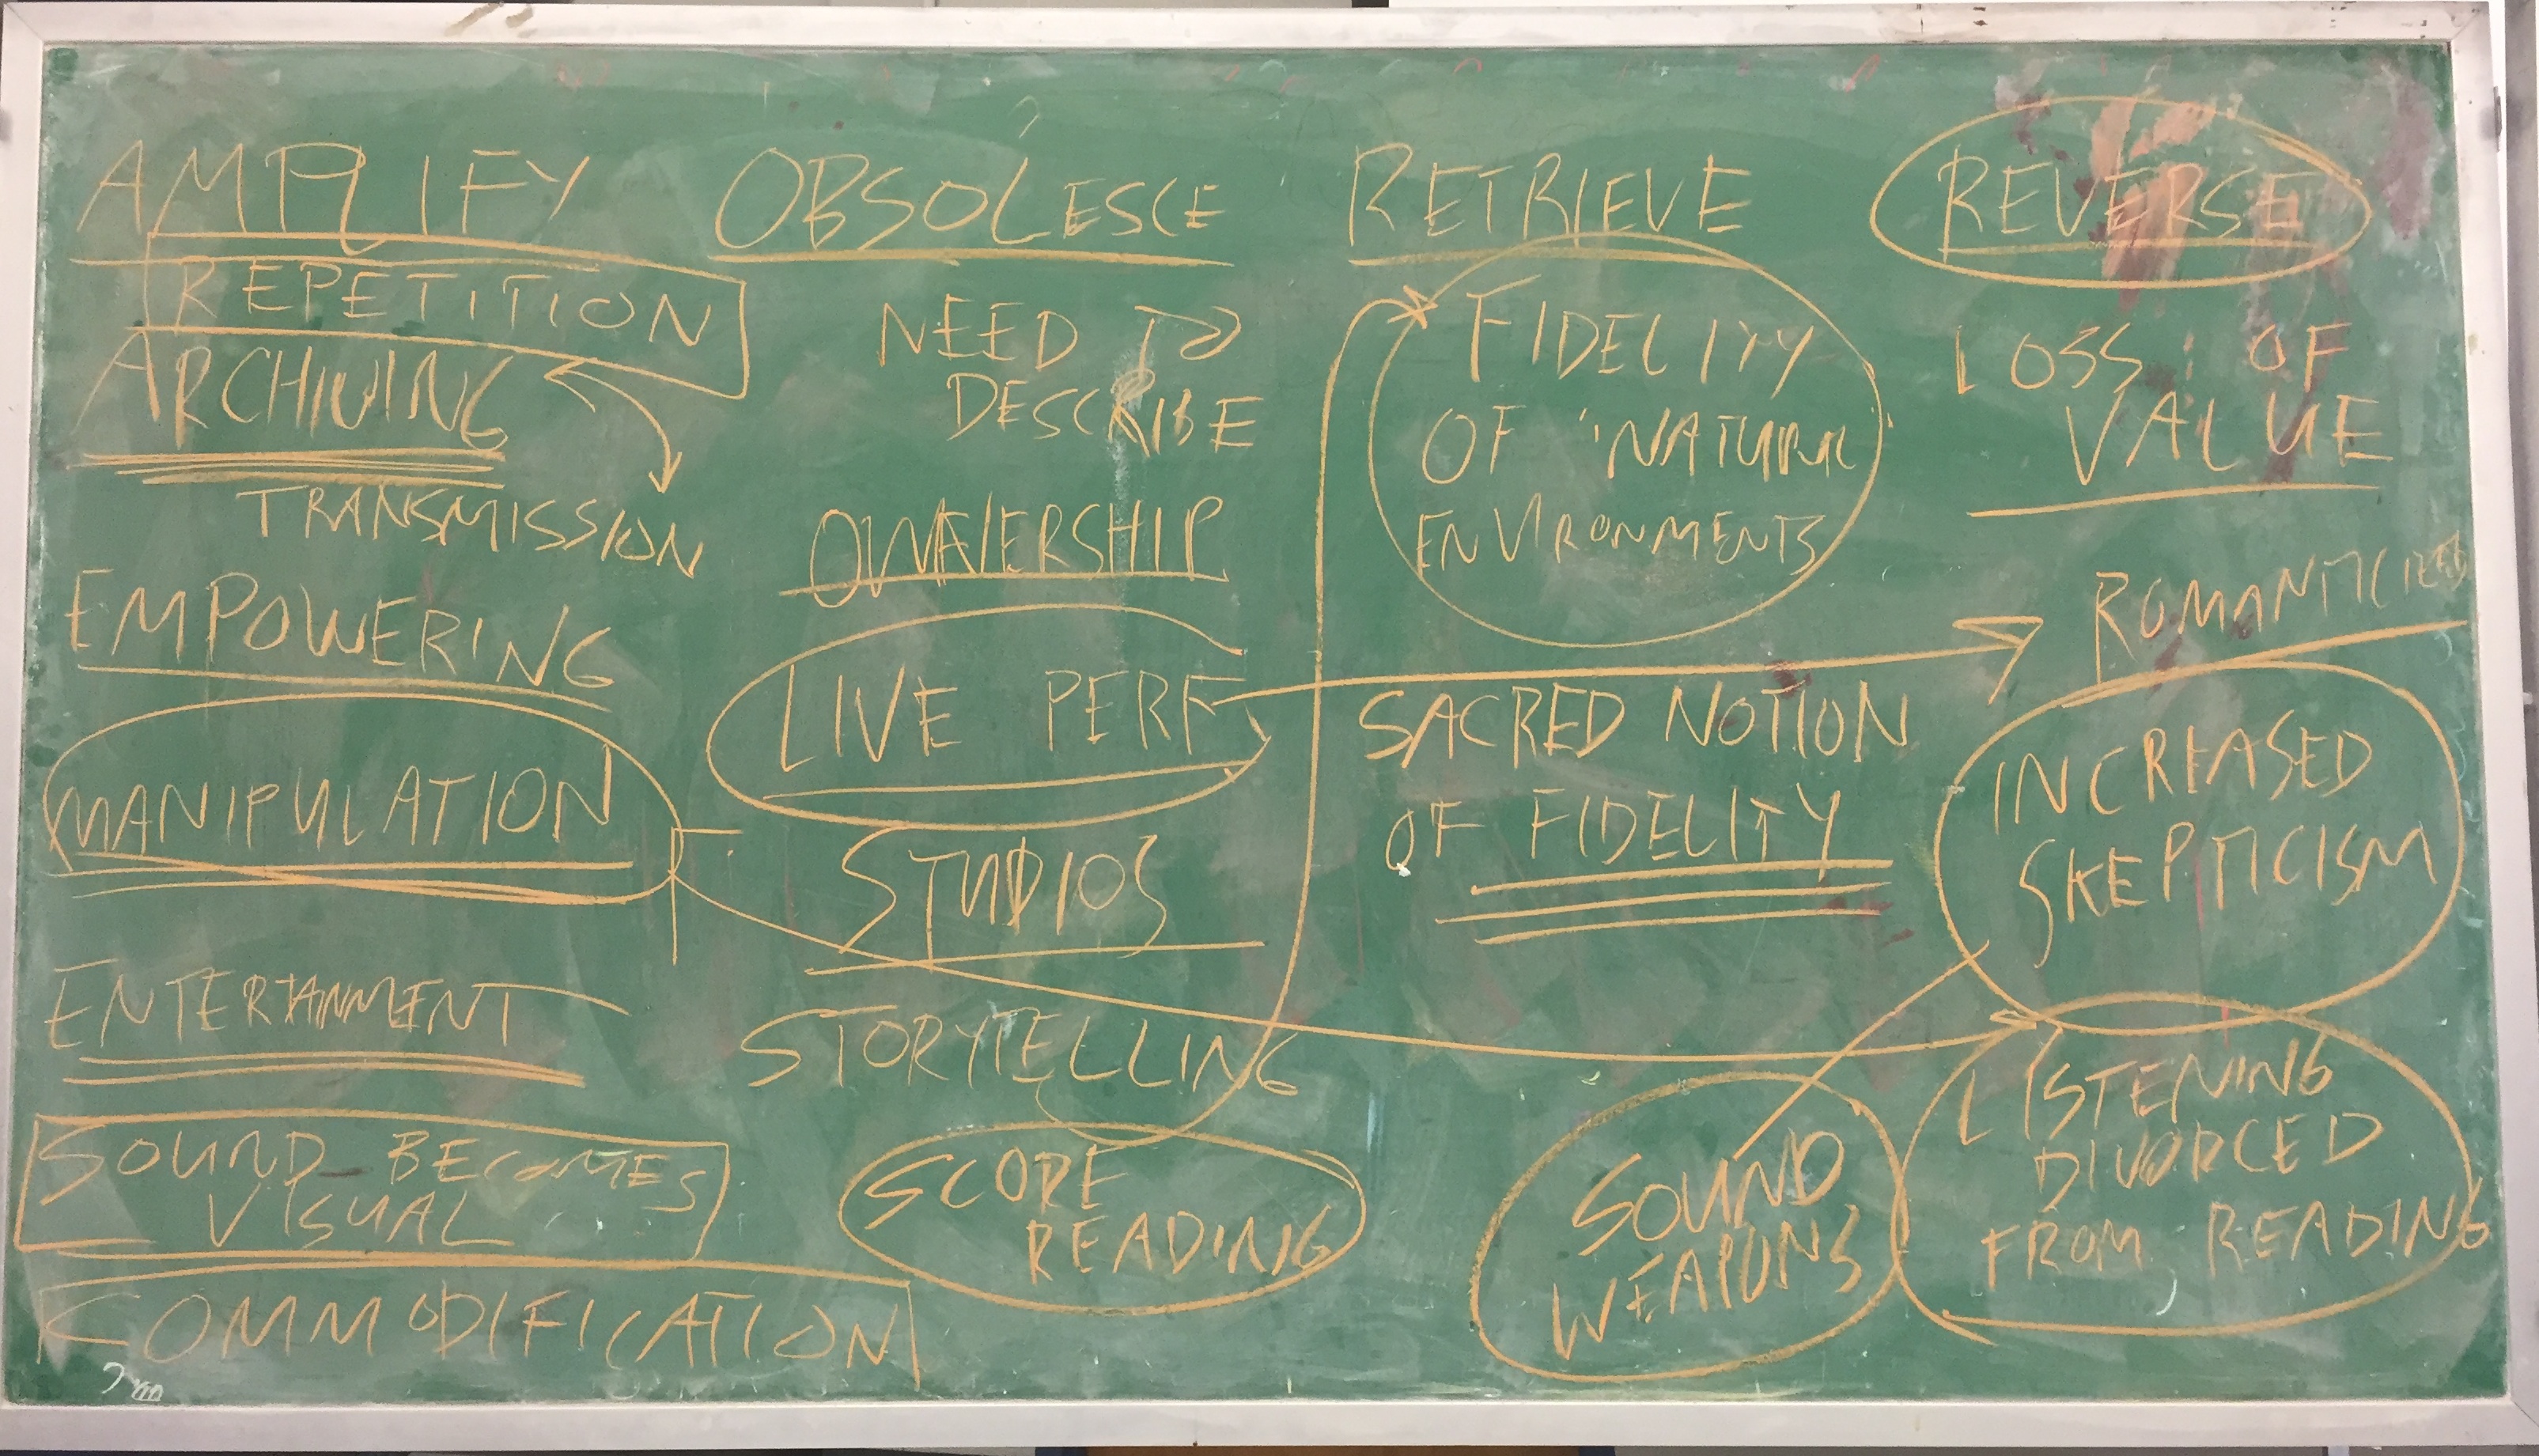 AMPLIFY
REPETITION
ARCHIVING
TRANSMISSION
EMPOWERING
MANIPULATION
ENTERTAINMENT
SOUND BECOMES
VISUAL
COMMODIFICATION
OBSOLESCE
NEED TO
DESCRIBE
OWNERSHIP
LIVE PERF
STUDIOS
STORYTELLING
SCORE
READING
RETRIEVE
FIDELITY
OF 'NATURAL
ENVIRONMENTS
SACRED NOTION
OF FIDELITY
SOUND
WEAPONS
REVERSE
LOSS OF
VALUE
ROMANTICIZED
INCREASED
SKEPTICISM
LISTENING
DIVORCED
FROM READING